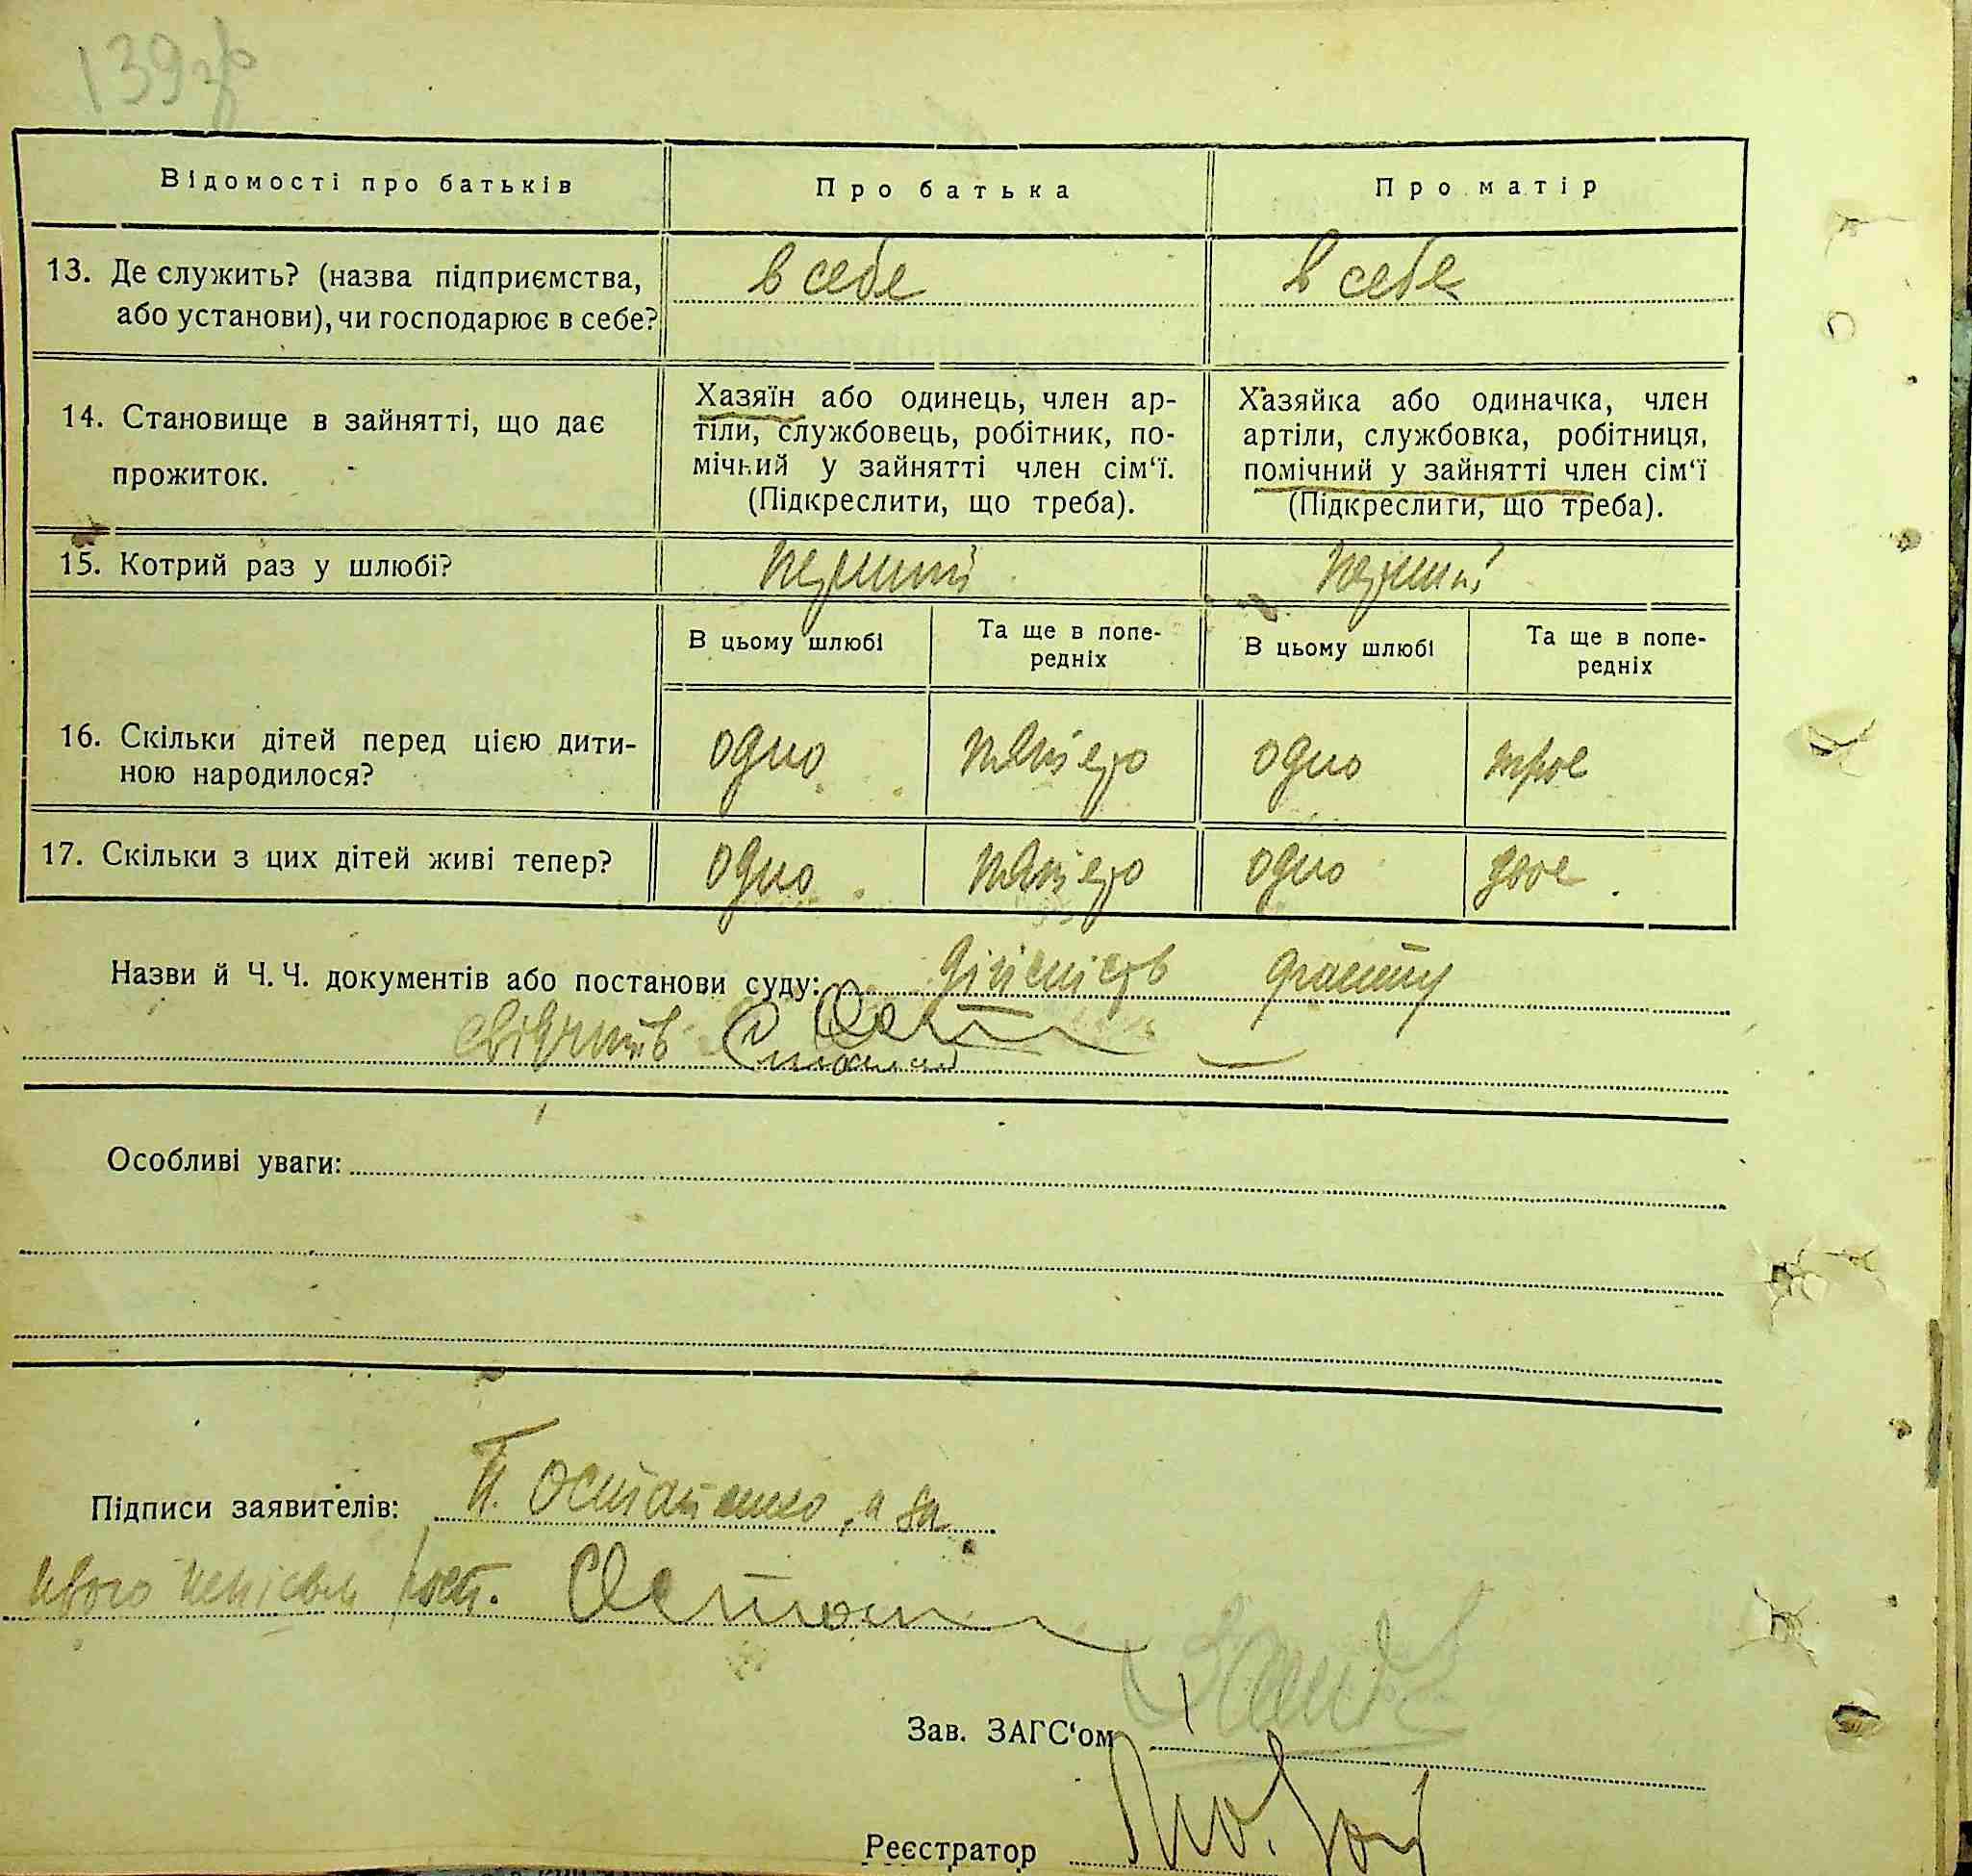 139зв
Відомості про батьків Про батька Про матір
13. Де служить? (назва підприємства, або установи), чи господарює в себе? в себе в себе
14. Становище в зайнятті, що дає прожиток.
Хазяїн або одинець, член ар-
тіли, службовець, робітник, по-
мічний у зайнятті член сім‘ї.
(Підкреслити, що треба).
Хазяйка або одиначка, член
артіли, службовка, робітниця,
помічний у зайнятті член сім‘ї
(Підкреслити, що треба).
15. Котрий раз у шлюбі? перший перший
В цьому шлюбі Та ще в попе-
редніх В цьому шлюбі Та ще в попе-
редніх
16. Скільки дітей перед цією дити-
ною народилося? одно одно трое
17. Скільки з цих дітей живі тепер? одно одно двое
Назви й Ч. Ч. документів або постанови суду: дійсність факту
свідчить
Особливі уваги:
Підписи заявителів: П. Остапенко, а за
нього рост.
Зав. ЗАГС‘ом
Реєстратор